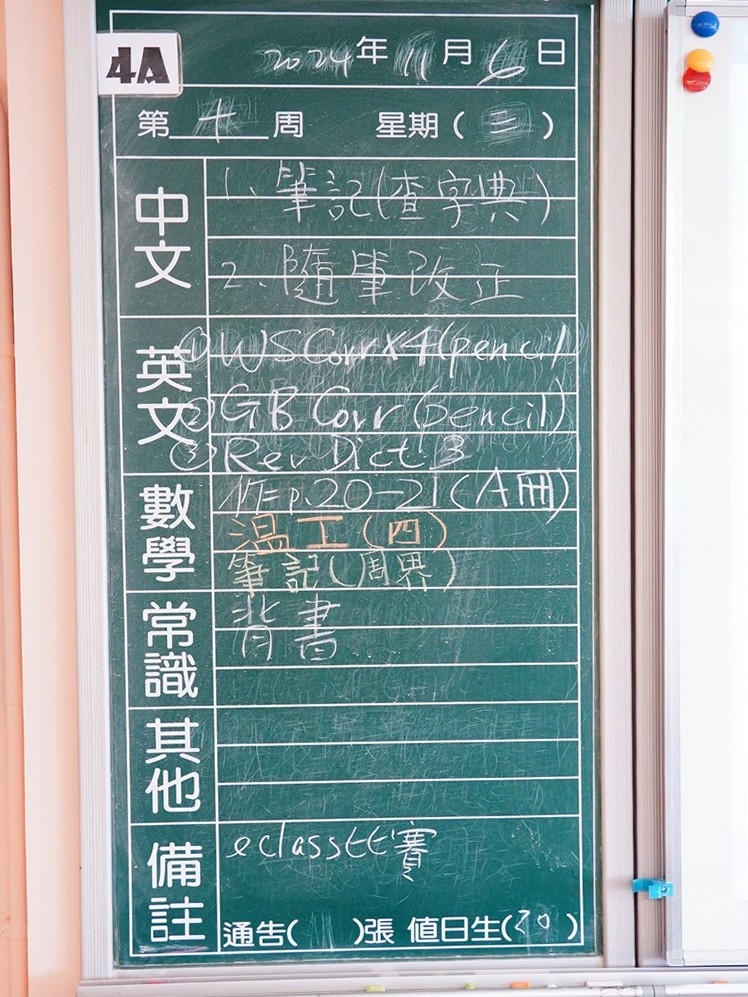 4A
2024年11月6日
第十周 星期(三)
中文
1、筆記(查字典)
2、隨筆改正
英文
①WS Corr x4(pencil)
②GB Corr (pencil)
③Rev Dict 3
數學
作=p.20-21(A冊)
温工(四)
筆記(周界)
常識
背書
其他
備註
eclass比賽
通告( )張 值日生(20)